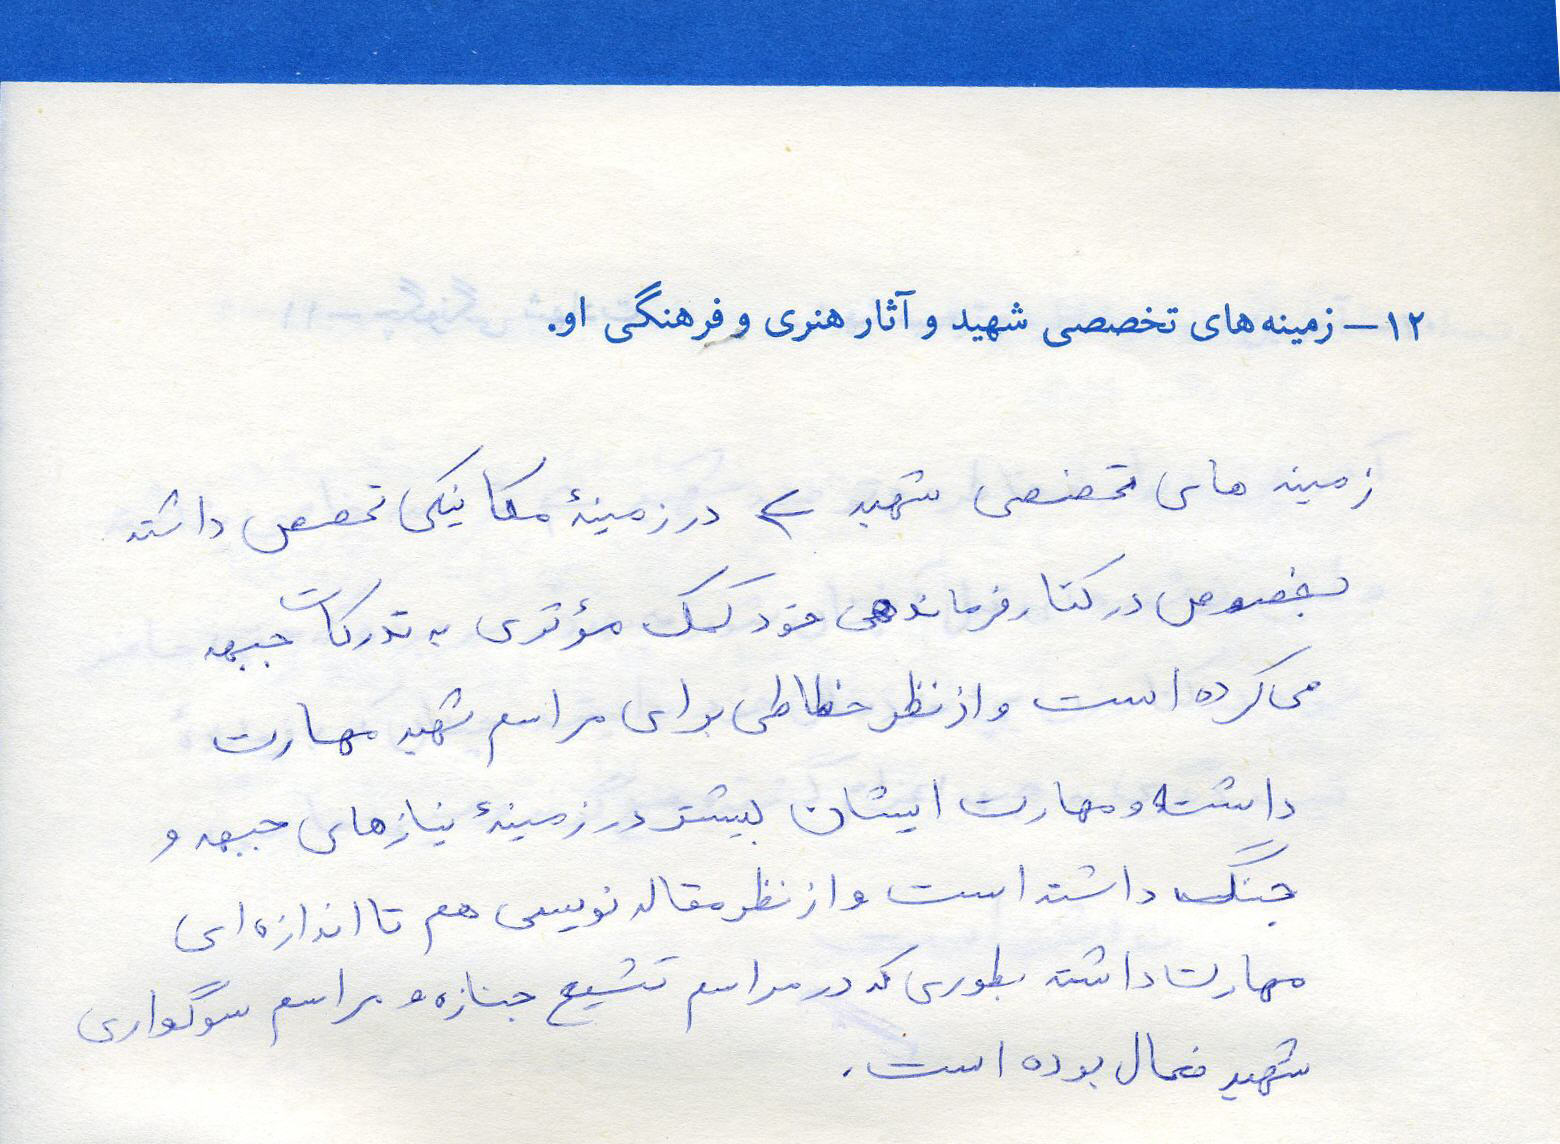 ۱۲- زمینه‌های تخصصی شهید و آثار هنری و فرهنگی او.
زمینه های تخصصی شهید > در زمینهٔ مکانیکی تخصص داشته
بخصوص در کنار فرماندهی خود کمک مؤثری به تدرکات جبهه
می‌کرده است و از نظر خطاطی برای مراسم شهید مهارت
داشته و مهارت ایشان بیشتر در زمینهٔ نیازهای جبهه و
جنگ داشته است و از نظر مقاله نویسی هم تا اندازه ای
مهارت داشته بطوری که در مراسم تشیع جنازه و مراسم سوگواری
شهید فعال بوده است.